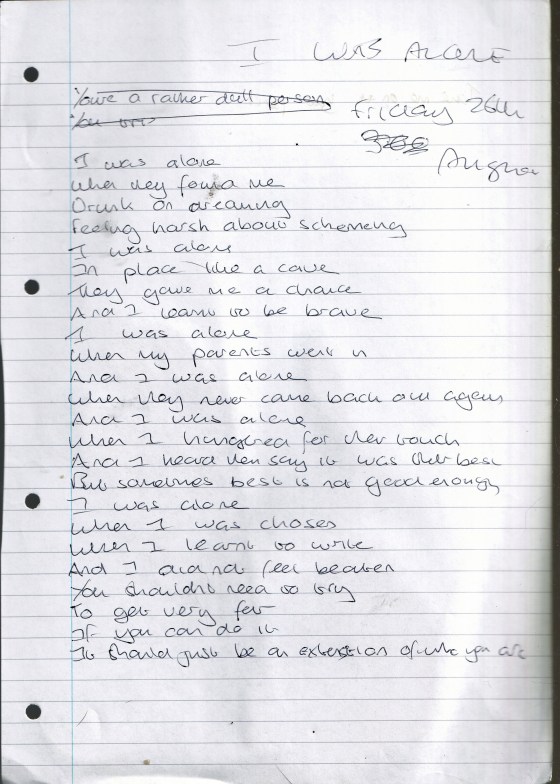 I WAS ALONE
You're a rather dull person
Friday 26th
You
August
I was alone
When they found me
Drunk on dreaming
Feeling harsh about schemeng
I was alone
In place like a cave
They gave me a chance
And I learnt to be brave
I was alone
When my parents went in
And I was alone
When they never came back out again
And I was alone
When I hungered for ther touch
And I heard them say it was their best
But sometimes best is not good enough
I was alone
When I was chosen
When I learnt to write
And I did not feel beaten
You shouldn't need to try
To get very far
If you can do it
It should just be an extension of who you are